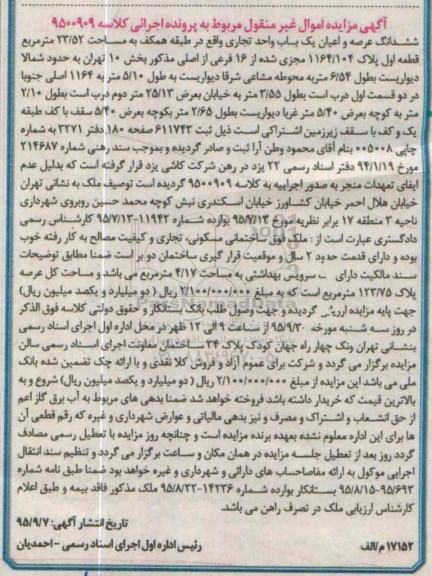 آگهی مزایده اموال غیر منقول مربوط به پرونده اجرائی کلاسه ۹۵۰۰۹۰۹
ششدانگ عرصه و اعیان یک باب واحد تجاری واقع در طبقه همکف به مساحت ۲۳/۵۲ مترمربع
قطعه اول پلاک ۱۱۶۴/۱۰۴ مجزی شده از ۱۶ فرعی از اصلی مذکور بخش ۱۰ تهران به حدود شمالا
دیواریست بطول ۶/۵۴ متربه محوطه مشاعی شرقا دیواریست به طول ۵/۱۰ متر به ۱۱۶۴ اصلی جنوبا
در دو قسمت اول درب است بطول ۳/۵۵ متر به خیابان بعرض ۲۵/۱۳ متر دوم درب است بطول ۲/۱۰
متر به کوچه بعرض ۵/۴۰ متر غربا دیواریست بطول ۲/۶۵ متر بکوچه بعرض ۵/۴۰ سقف با کف طبقه
یک و کف با سقف زیرزمین اشتراکی است ذیل ثبت ۶۱۱۷۴۳ صفحه ۱۸۰ دفتر ۳۲۷۱ به شماره
چاپی ۰۰۵۰۰۸ بنام آقای محمود وطن آرا ثبت و صادر گردیده و بموجب سند رهنی شماره ۲۱۴۶۸۷
مورخ ۹۴/۱/۱۹ دفتر اسناد رسمی ۲۲ یزد در رهن شرکت کاشی یزد قرار گرفته است که بدلیل عدم
ایفای تعهدات منجر به صدور اجراییه به کلاسه ۹۵۰۰۹۰۹ گردیده است توصیف ملک به نشانی تهران
خیابان هلال احمر خیابان کشاورز خیابان اسکندری نبش کوچه محمد حسین روبروی شهرداری
ناحیه ۳ منطقه ۱۷ برابر نظریه مورخ ۹۵/۷/۱۳ وارده شماره ۱۱۹۴۲-۹۵/۷/۱۳ کارشناس رسمی
دادگستری عبارت است از : ملک فوق ساختمانی مسکونی، تجاری و کیفیت مصالح به کار رفته خوب
بوده و دارای قدمت حدود ۲ سال و موقعیت قرار گیری ساختمان دو بر است ضمنا مطابق توضیحات
سند مالکیت دارای سرویس بهداشتی به مساحت ۴/۱۷ مترمربع می باشد و مساحت کل عرصه
پلاک ۱۲۳/۷۵ مترمربع است که به مبلغ ۲/۱۰۰/۰۰۰/۰۰۰ ریال ( دو میلیارد و یکصد میلیون ریال)
جهت پایه مزایده گردیده و جهت وصول طلب بستانکار و حقوق دولتی کلاسه فوق الذکر
در روز سه شنبه مورخه ۹۵/۹/۳۰ از ساعت ۹ الی ۱۲ ظهر در محل اداره اول اجرای اسناد رسمی
بنشانی تهران ونک چهار راه جهان کودک پلاک ۳۴ ساختمان معاونت اجرای اسناد رسمی سالن
مزایده برگزار می گردد و شرکت برای عموم آزاد و فروش کلا نقدی و با ارائه چک تضمین شده بانک
ملی می باشد این مزایده از مبلغ ۲/۱۰۰/۰۰۰/۰۰۰ ریال ( دو میلیارد و یکصد میلیون ریال) شروع و به
بالاترین قیمت که خریدار داشته باشد فروخته خواهد شد ضمنا بدهی های مربوط به آب برق گاز اعم
از حق انشعاب و اشتراک و مصرف و نیز بدهی مالیاتی و عوارض شهرداری و غیره که رقم قطعی آن
ها برای این اداره معلوم نشده بعهده برنده مزایده است و چنانچه روز مزایده با تعطیل رسمی مصادف
گردد روز بعد از تعطیل جلسه مزایده در همان مکان و ساعت برگزار می گردد و تنظیم سند انتقال
اجرایی موکول به ارائه مفاصاحساب های دارائی و شهرداری و غیره خواهد بود ضمنا طبق نامه شماره
۹۵/۶۹۳-۹۵/۸/۱۵ بستانکار بوارده شماره ۱۴۲۳۶-۹۵/۸/۲۲ ملک مذکور فاقد بیمه و طبق اعلام
کارشناس ارزیابی ملک در تصرف راهن می باشد.
تاریخ انتشار آگهی: ۹۵/۹/۷
۱۷۱۵۲/م الف رئیس اداره اول اجرای اسناد رسمی - احمدیان